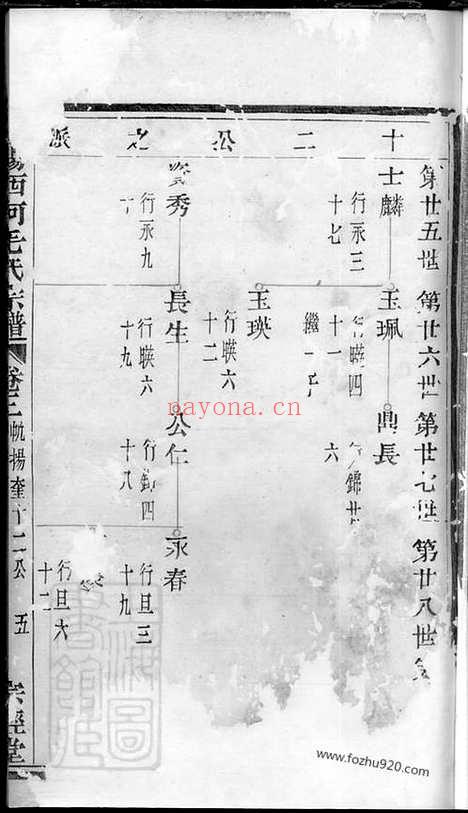 十二公之派
第廿五世 第廿六世 第廿七世 第廿八世
士麟 玉珮 鼎長
行永三十七
行暎四十一
錦廿六
繼一子
玉瑛
行暎六十二
秀 長生 公仁 永春
行永九十
行暎六十九
行錦四十八
行旦三十九
行旦六十二
西河毛氏宗譜
卷三
帆揚奎十二公
五
堂
nayona.cn
www.fozhu920.com